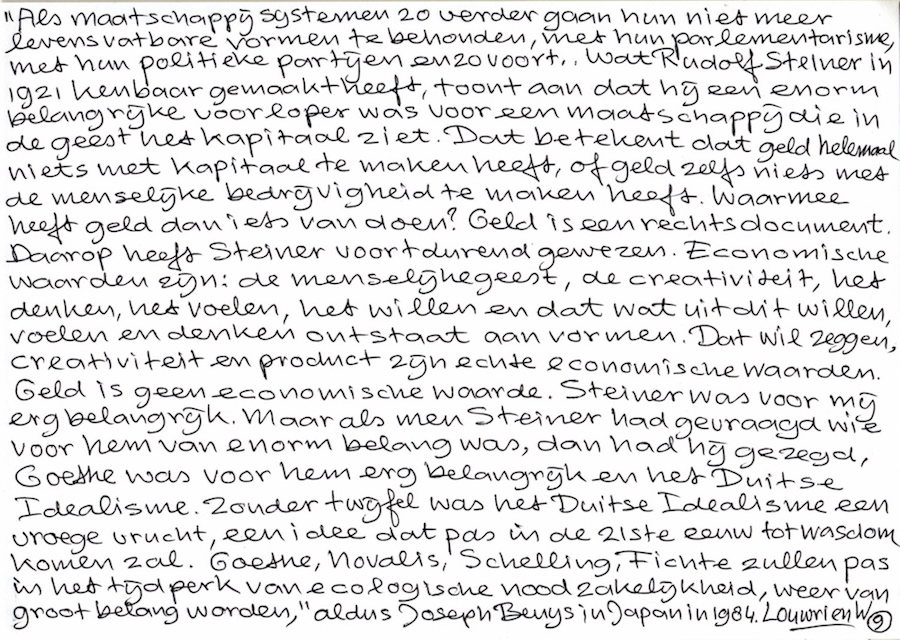 "Als maatschappijsystemen zo verder gaan hun niet meer
levensvatbare vormen te behouden, met hun parlementarisme,
met hun politieke partijen enzovoort.. Wat Rudolf Steiner in
1921 kenbaar gemaakt heeft, toont aan dat hij een enorm
belangrijke voorloper was voor een maatschappij die in
de geest het kapitaal ziet. Dat betekent dat geld helemaal
niets met kapitaal te maken heeft, of geld zelfs niets met
de menselijke bedrijvigheid te maken heeft. Waarmee
heeft geld dan iets van doen? Geld is een rechtsdocument.
Daarop heeft Steiner voortdurend gewezen. Economische
waarden zijn: de menselijke geest, de creativiteit, het
denken, het voelen, het willen en dat wat uit dit willen,
voelen en denken ontstaat aan vormen. Dat wil zeggen,
creativiteit en product zijn echte economische waarden.
Geld is geen economische waarde. Steiner was voor mij
erg belangrijk. Maar als men Steiner had gevraagd wie
voor hem van enorm belang was, dan had hij gezegd,
Goethe was voor hem erg belangrijk en het Duitse
Idealisme. Zonder twijfel was het Duitse Idealisme een
vroege vrucht, een idee dat pas in de 21ste eeuw tot wasdom
komen zal. Goethe, Novalis, Schelling, Fichte zullen pas
in het tijdperk van ecologische noodzakelijkheid, weer van
groot belang worden," aldus Joseph Beuys in Japan in 1984. Louwrien W 9